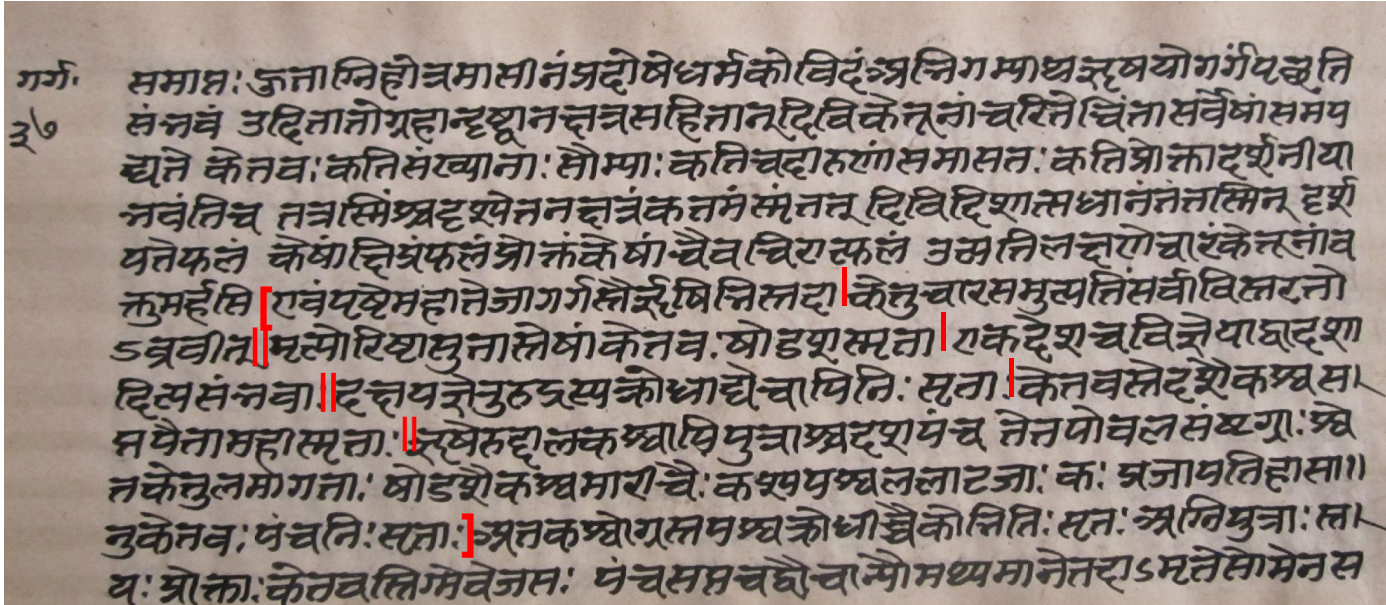 गर्ग॰ समाप्तः हुताग्निहोत्रमासीनंप्रदोषेधर्मकोविदंअभिगम्याथऋषयोगर्गंपृछति
३७ संभवं उदितातोग्रहान्दृष्ट्वानक्षत्रसहितान्दिविकेतूनांचरितेचिंतासर्वेषांसमप
द्यते केतवः कतिसंख्यानाः सौम्याः कतिचदारुणांसमासतः कतिप्रोक्तादर्शनीया
भवंतिच तत्रस्मिंश्चदृश्येतनक्षत्रंकतमंस्मृततत् दिविदिशात्मधानंतंतस्मिन् दृर्श
यतेफलं केषांक्षिप्रंफलंप्रोक्तंकेषांचैवचिरात्फलं उत्पत्तिलक्षणेचारंकेतूनांव
क्तुमर्हसि एवंपृष्टेमहातेजागर्गस्तैर्ऋषिभिस्तदा केतुचारसमुत्पत्तिंसर्वाविस्तरतो
ऽब्रवीत् मृत्योरिष्टासुतास्तेषांकेतव॰षोडशस्मृता एकदेशचविज्ञेयाद्वादशा
दित्यसंभवा दक्षयज्ञेनुरुद्रस्यक्रोधाद्येचापिनिः सृताः केतवस्तेदशैकश्चस
प्तपैतामहास्मृताः ऋषेरुद्दालकश्चापिपुत्राश्चदशपंच तेतपोबलसंष्टग्राः श्वे
तकेतुलमागताः षोडशैकंश्चमारीचैः कश्यपश्चललाटजाः कः प्रजापतिहासा
नुकेतवः पंचनिः सृताः अतकश्चोग्रस्तपश्चक्रोधाच्चैकोभितिः सृतः अग्निपुत्राः स्त
यः प्रोक्ताः केतवस्तिग्मतेजसः पंचसप्तचद्वौचान्यौमध्यमानेतदाऽमृतेसोमेनस